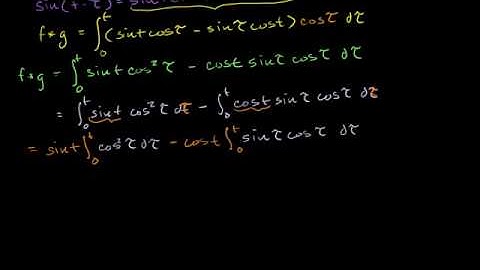 sin(t-τ) = sin
f*g = ∫₀ᵗ (sin t cos τ - sin τ cos t) cos τ dτ
f*g = ∫₀ᵗ sin t cos² τ - cos t sin τ cos τ dτ
= ∫₀ᵗ sin t cos² τ dτ - ∫₀ᵗ cos t sin τ cos τ dτ
= sin t ∫₀ᵗ cos² τ dτ - cos t ∫₀ᵗ sin τ cos τ dτ